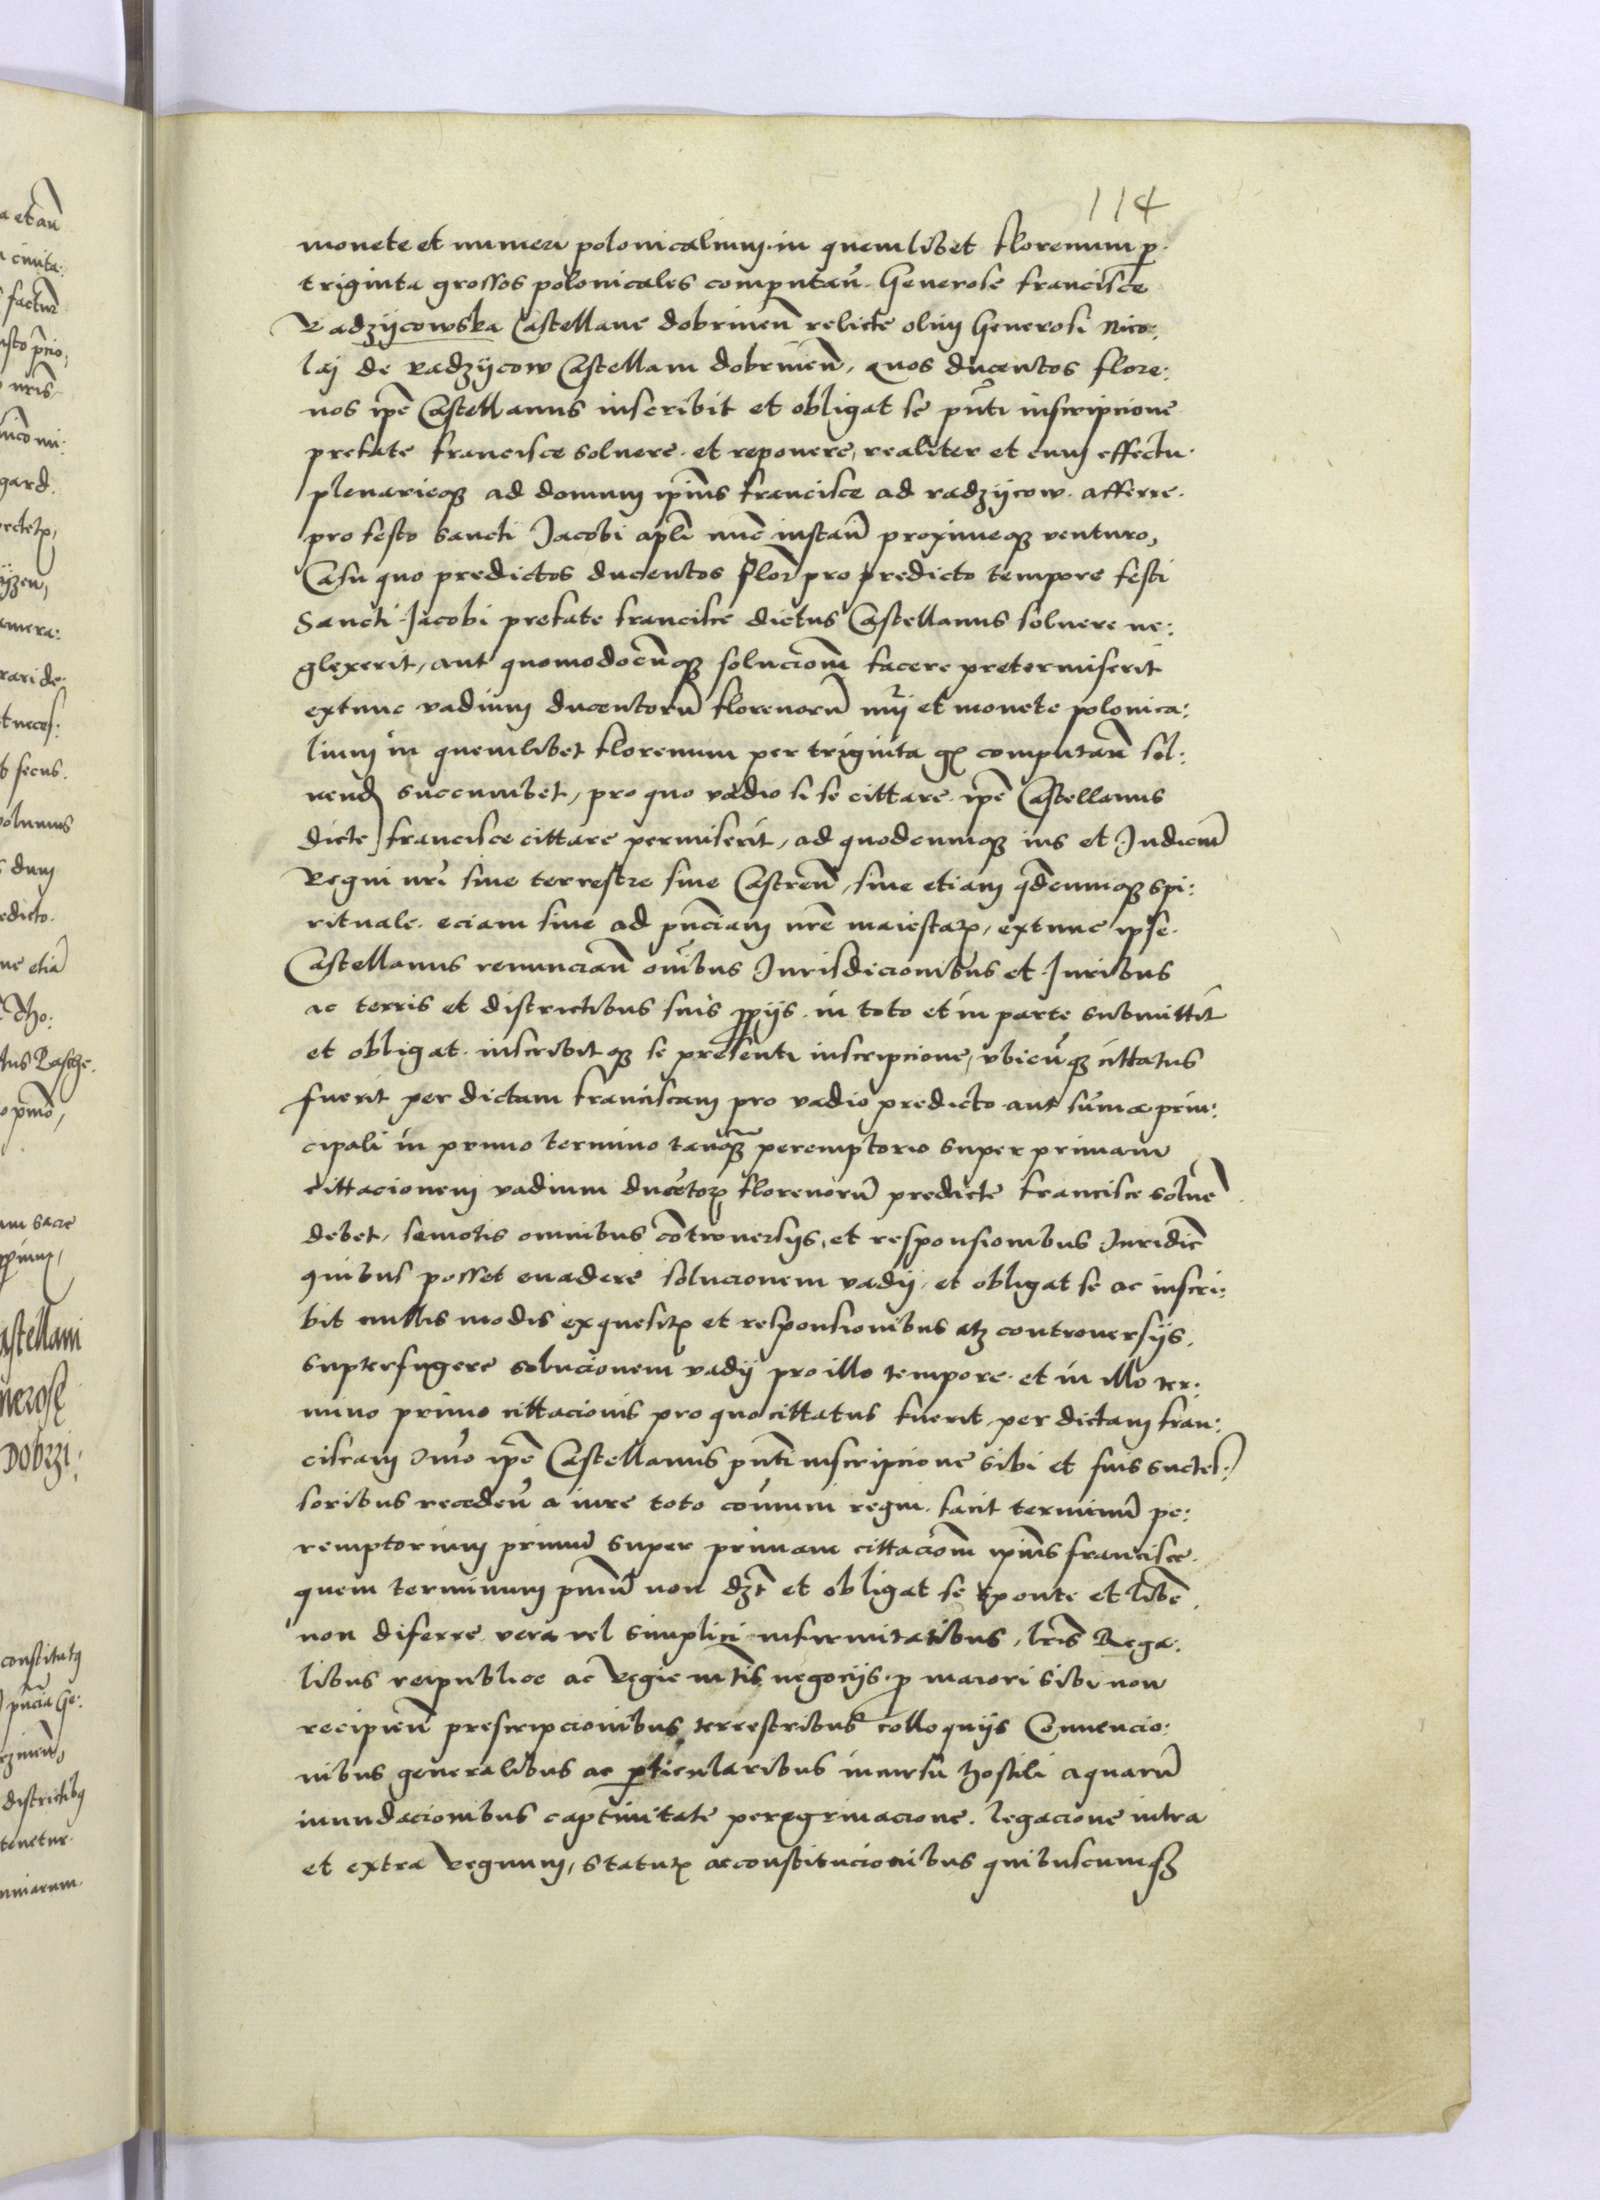 114
monete et numeri polonicalium in quemlibet florenum p
triginta grossos polonicales computañ. Generose francisce
Radzijcowska Castellane dobrinen̄ relicte olim Generosi Nico:
laj de radzijcow Castellani dobrinen̄, quos ducentos flore:
nos ip̄e Castellanus inscribit et obligat se pn̄ti inscripcione
prefate francisce soluere et reponere, realiter et cum effectu
plenarieqȝ ad domum ip̄ius francisce ad radzijcow afferre.
pro festo sancti Jacobi apl̄i nūc instan̄ proximeqȝ venturo,
Casu quo predictos ducentos flor̄ pro predicto tempore festi
Sancti Jacobi prefate francisce dictus Castellanus soluere ne:
glexerit, aut quomodocūqȝ solucionē facere pretermiserit
extunc vadium ducentorū florenorū nr̄i et monete polonica:
lium in quemlibet florenum per triginta gꝝ computan̄ sol:
uend succumbet, pro quo vadio si se cittare ip̄e Castellanus
dicte francisce cittare permiserit, ad quodcumqȝ ius et Judiciū
Regni nr̄i siue terrestre siue Castren̄, siue etiam qd̄cumqȝ spi:
rituale. eciam siue ad pn̄ciam nr̄e maiestatꝭ, extunc ipse
Castellanus renuncian̄ om̄ibus Jurisdicionibus et Juribus
ac terris et districtibus suis ꝓprijs in toto et in parte submittit
et obligat inscribitqȝ se presenti inscripcione, vbicūqȝ cittatus
fuerit per dictam franciscam pro vadio predicto aut sūma prin:
cipali in primo termino tanqȝ peremptorio super primam
cittacionem vadium ducētorꝝ florenorū predicte francisce soluē
debet, semotis omnibus cōtrouersijs, et responsionibus Juridic̄
quibus posset euadere solucionem vadij, et obligat se ac inscri:
bit nullis modis exquesitꝭ et responsionibus atȝ controuersijs
supterfugere solucionem vadij pro illo tempore et in illo ter:
mino primo cittacionis pro quo cittatus fuerit per dictam fran:
ciscam Imo ip̄e Castellanus pn̄ti inscripcione sibi et suis succes:
soribus receden̄ a iure toto cōmuni regni facit terminū pe:
remptorium primū super primam cittacionē ip̄ius francisce.
quem terminum pn̄m non dȝt et obligat se sponte et libē
non diferre vera vel simplici infirmitatibus, lr̄is Rega:
libus reipublice ac Regie mt̄is negocijs p maiori sibi non
recipien̄ prescripcionibus terrestribus colloquijs Conuencio:
nibus generalibus ac particularibus incursu hostili aquarū
inundacionibus captiuitate peregrinacione. legacione intra
et extra regnum, statutꝭ ac constitucionibus quibuscumqȝ